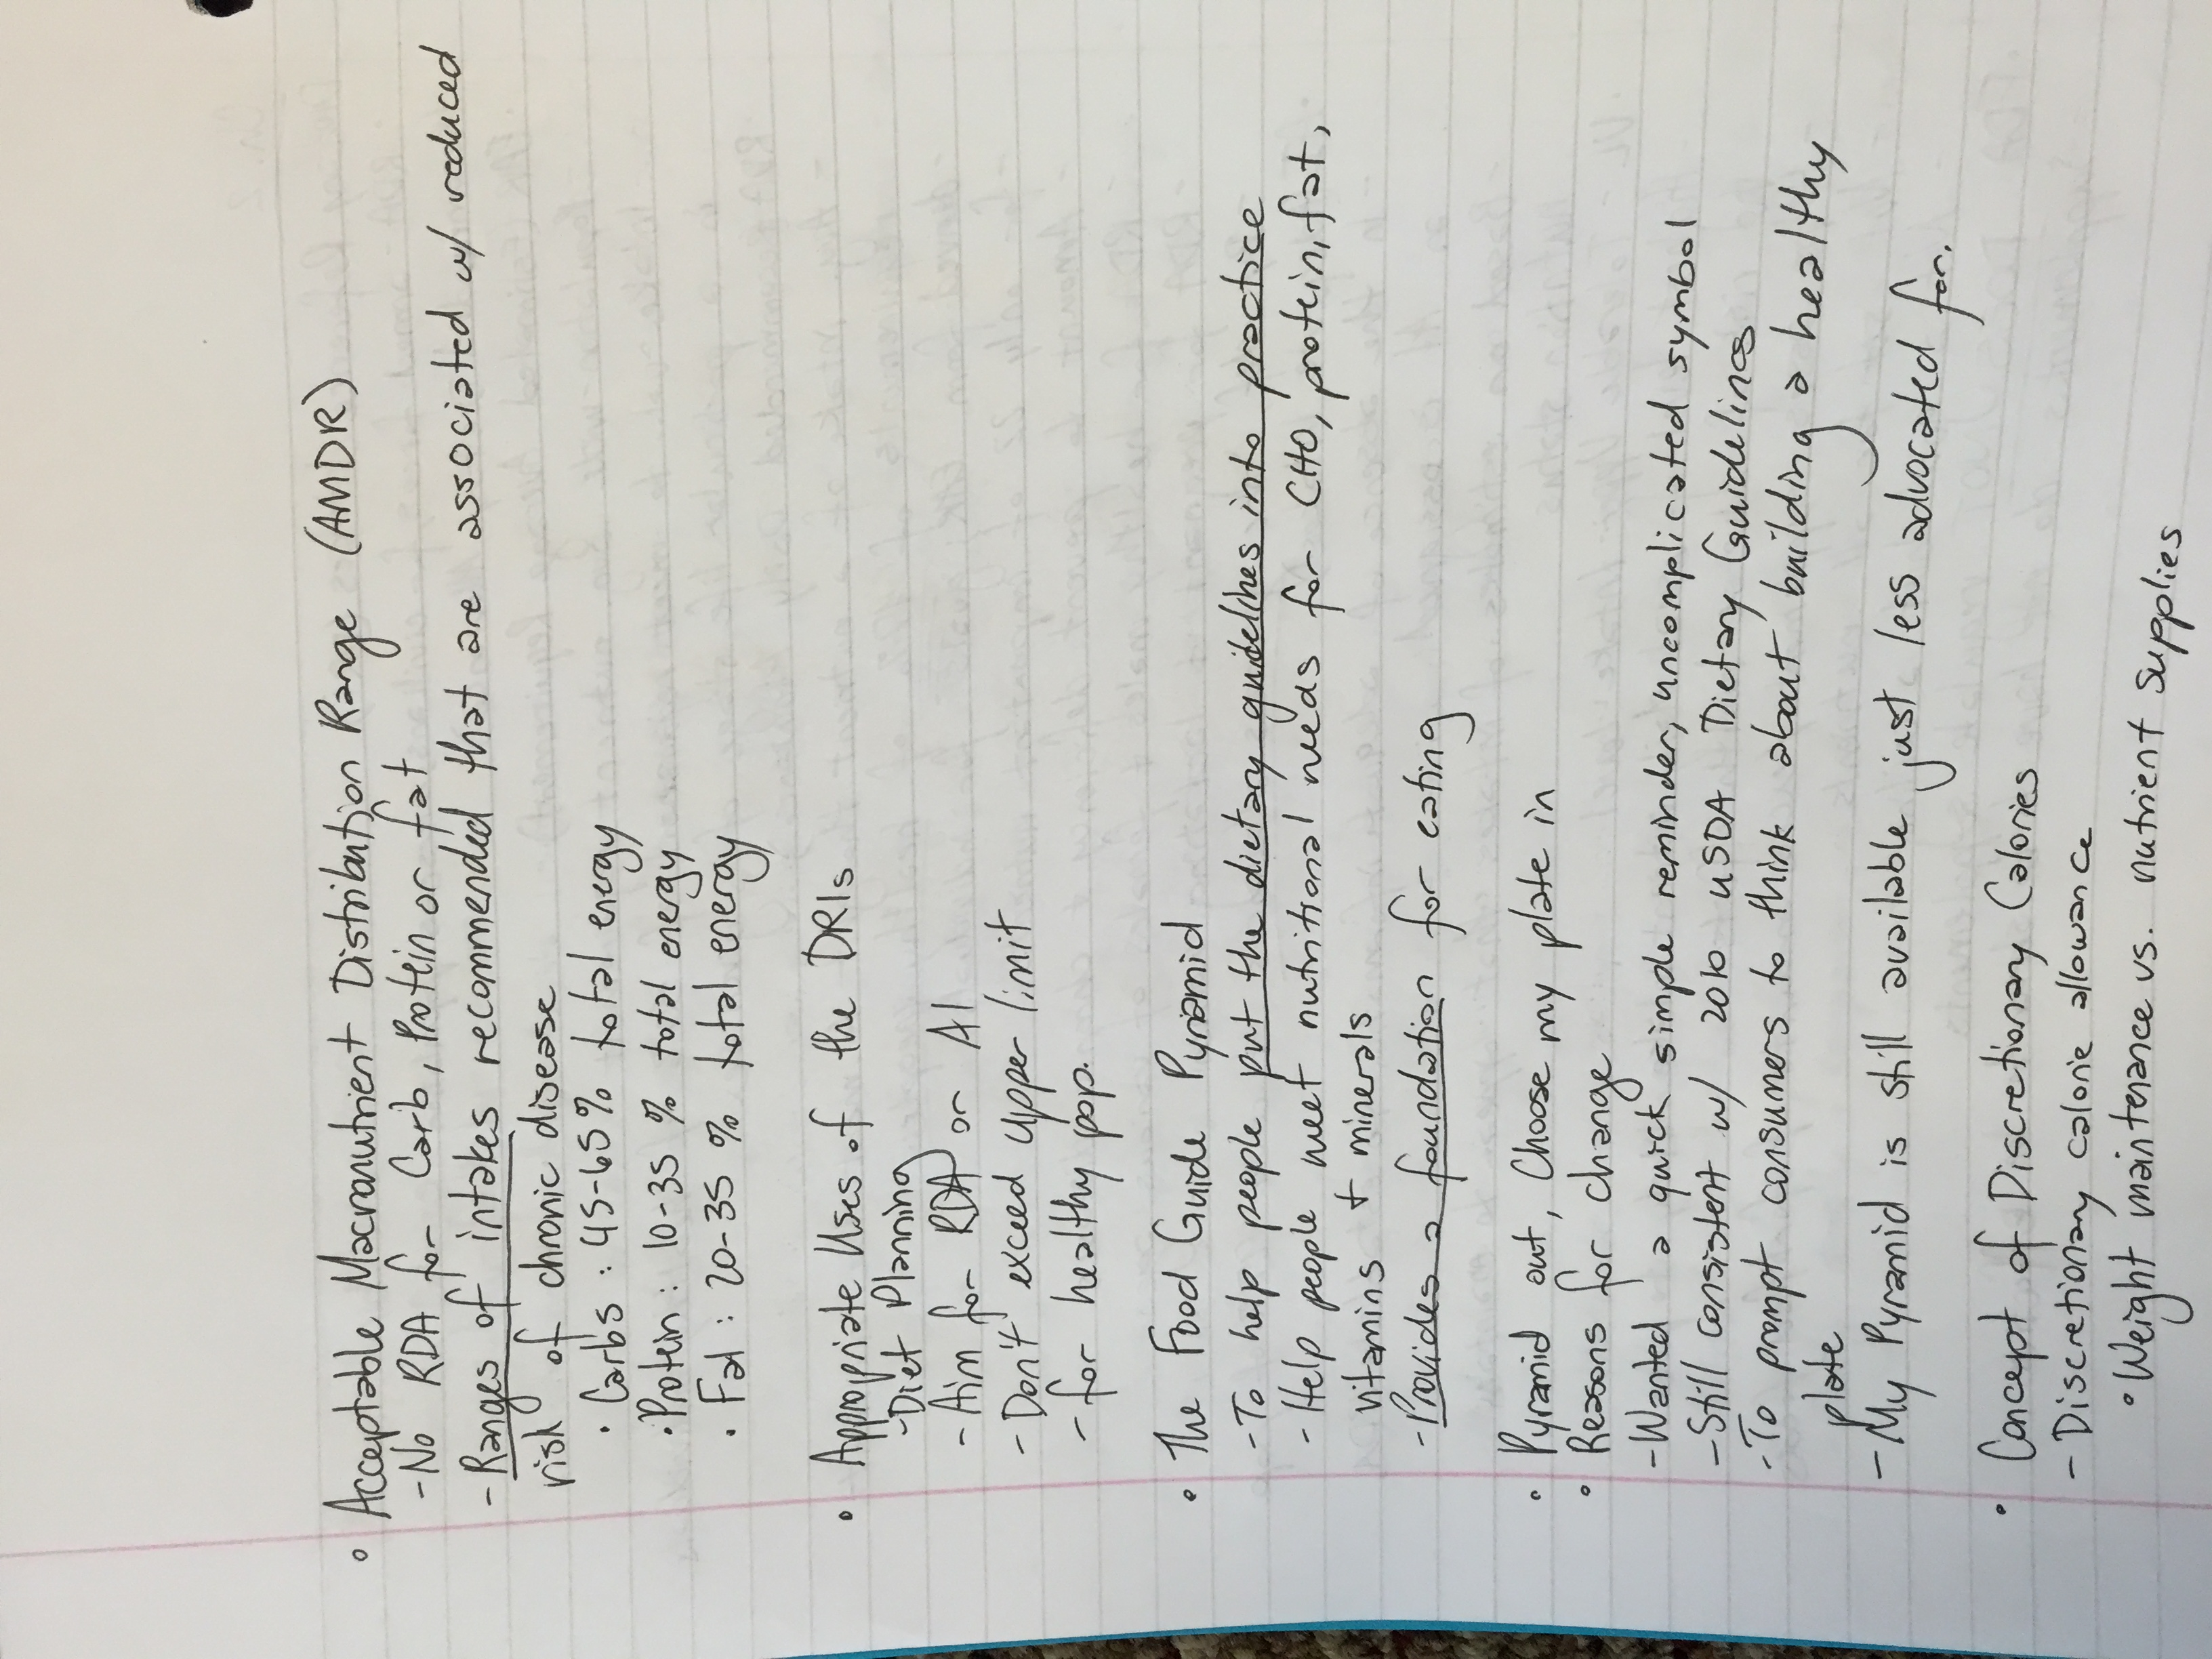 • Acceptable Macronutrient Distribution Range (AMDR)
- No RDA for Carb, Protein or fat
- Ranges of intakes recommended that are associated w/ reduced
risk of chronic disease
• Carbs : 45-65 % total energy
• Protein : 10-35 % total energy
• Fat : 20-35 % total energy
• Appropriate Uses of the DRIs
- Diet Planning
- Aim for RDA or AI
- Don't exceed upper limit
- for healthy pop.
• The Food Guide Pyramid
- To help people put the dietary guidelines into practice
- Help people meet nutritional needs for CHO, protein, fat,
vitamins + minerals
- Provides a foundation for eating
• Pyramid out, Choose my plate in
• Reasons for change
- Wanted a quick simple reminder, uncomplicated symbol
- Still consistent w/ 2010 USDA Dietary Guidelines
- To prompt consumers to think about building a healthy
plate
- My Pyramid is still available just less advocated for.
• Concept of Discretionary Calories
- Discretionary calorie allowance
• Weight maintenance vs. nutrient supplies